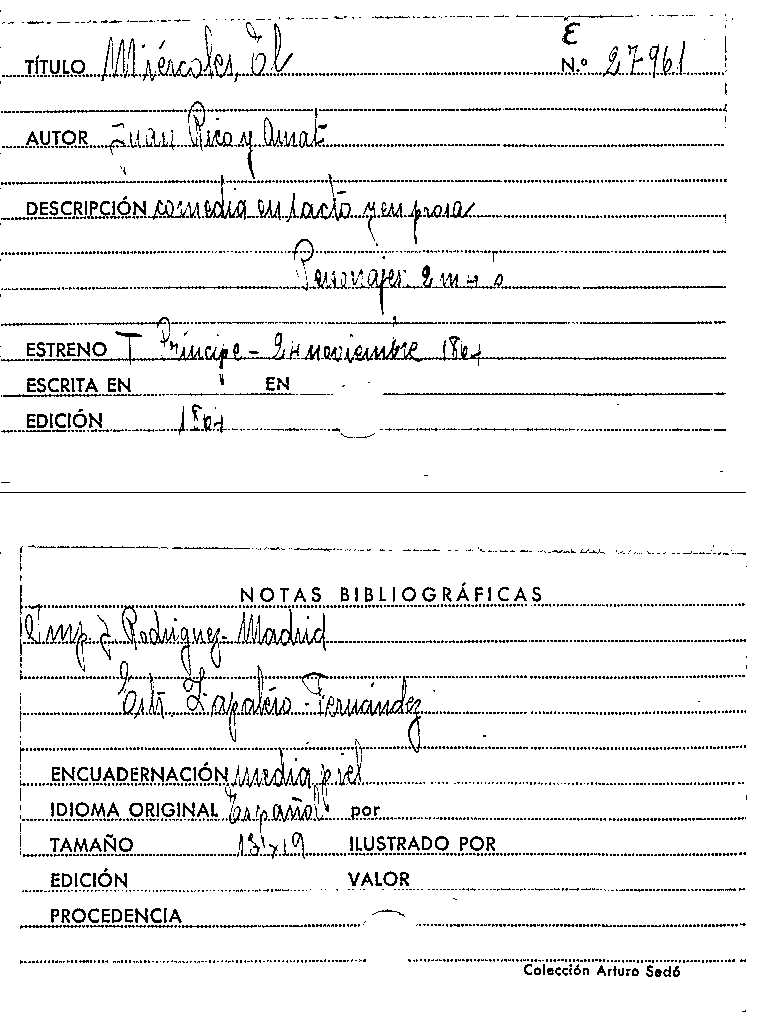 E
TÍTULO Miércoles, El N.º 27961
AUTOR Juan Rico y Amat
DESCRIPCIÓN comedia en 1 acto y en prosa
Personajes. 2 m 4
ESTRENO T Príncipe - 24 noviembre 1864
ESCRITA EN EN
EDICIÓN 1864
NOTAS BIBLIOGRÁFICAS
Imp. J Rodriguez - Madrid
Zapatero - Fernández
ENCUADERNACIÓN media piel
IDIOMA ORIGINAL Español por
TAMAÑO 13x19 ILUSTRADO POR
EDICIÓN VALOR
PROCEDENCIA
Colección Arturo Sedó